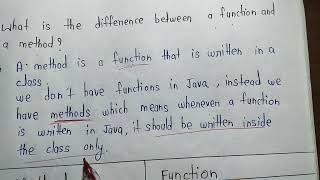 What is the difference between a function and
a method?
A. method is a function that is written in a
class.
we don't have functions in Java, instead we
have methods which means whenever a function
is written in Java, it should be written inside
the class only.
Function